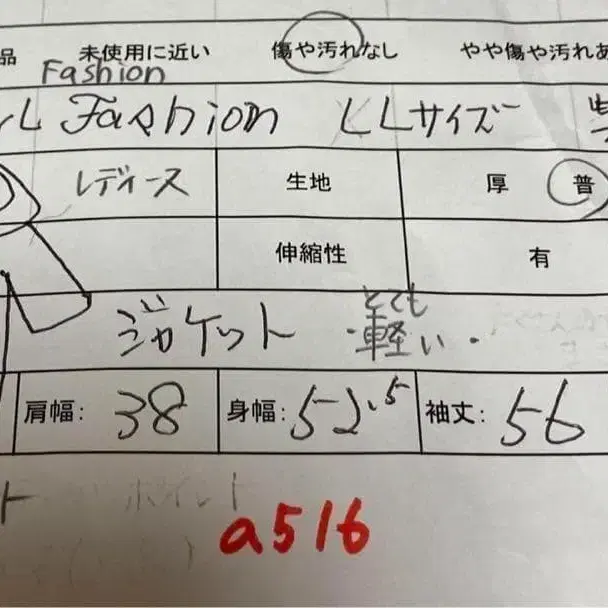 品 未使用に近い 傷や汚れなし やや傷や汚れあ
Fashion
L Fashion LLサイズ
レディース 生地 厚 普
伸縮性 有
とても
ジャケット ・軽い・
肩幅: 38 身幅: 52.5 袖丈: 56
ト ポイント
a516